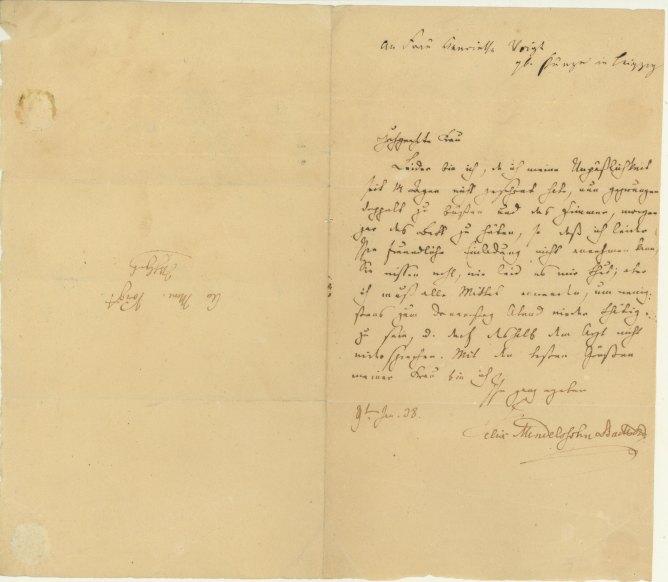 An Frau Henriette Voigt
gb. Kunze in Leipzig
Hochgeehrte Frau
Leider bin ich, da ich meine Unpäßlichkeit
seit 14 Tagen nicht geschont habe, nun gezwungen
doppelt zu büßen und das Zimmer, morgen
gar das Bett zu hüten, so daß ich leider
Ihre freundliche Einladung nicht annehmen kann.
Sie wissen wohl, wie leid es mir thut; aber
ich muß alle Mittel anwenden, um wenig-
stens zum Donnerstag Abend wieder thätig
zu sein, u. darf deshalb dem Arzt nicht
widersprechen. Mit den besten Grüßen
meiner Frau bin ich
Ihr ganz ergebner
9t Jan. 38.
Felix Mendelssohn Bartholdy
Voigt.